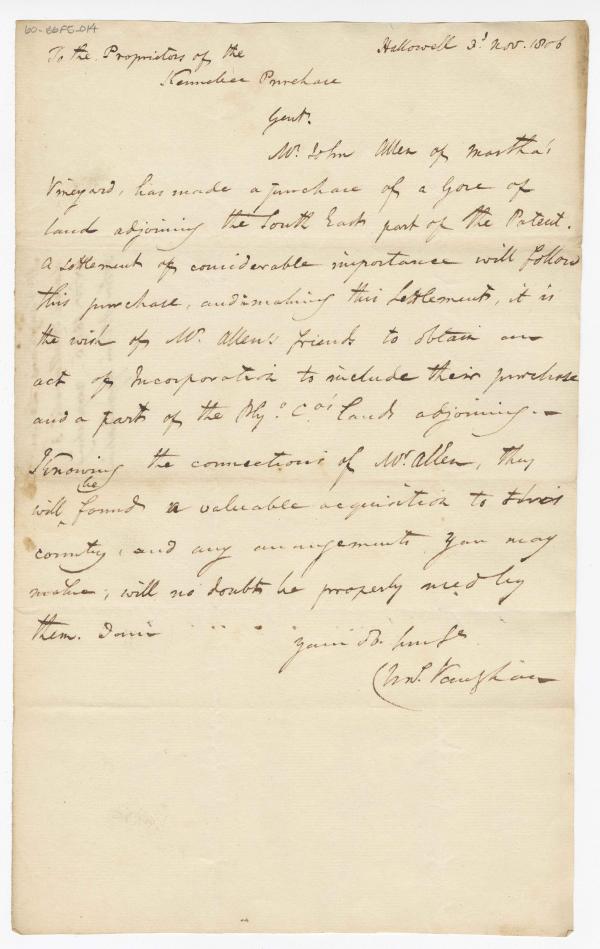 60-BBFC-014
Hallowell 3d. Nov. 1806
To the Proprietors of the
Kennebec Purchase
Gent.
Mr. John Allen of Martha's
Vineyard, has made a purchase of a Gore of
land adjoining the South East part of the Patent.
A settlement of considerable importance will follow
this purchase, and in making this Settlement, it is
the wish of Mr. Allen's friends to obtain an
act of Incorporation to include their purchase
and a part of the Cos. Lands adjoining.—
Knowing the connections of Mr. Allen, they
will be found a valuable acquisition to this
country, and any arrangements you may
make, will no doubt be properly used by
them. I am
your Ob.
Vaughan